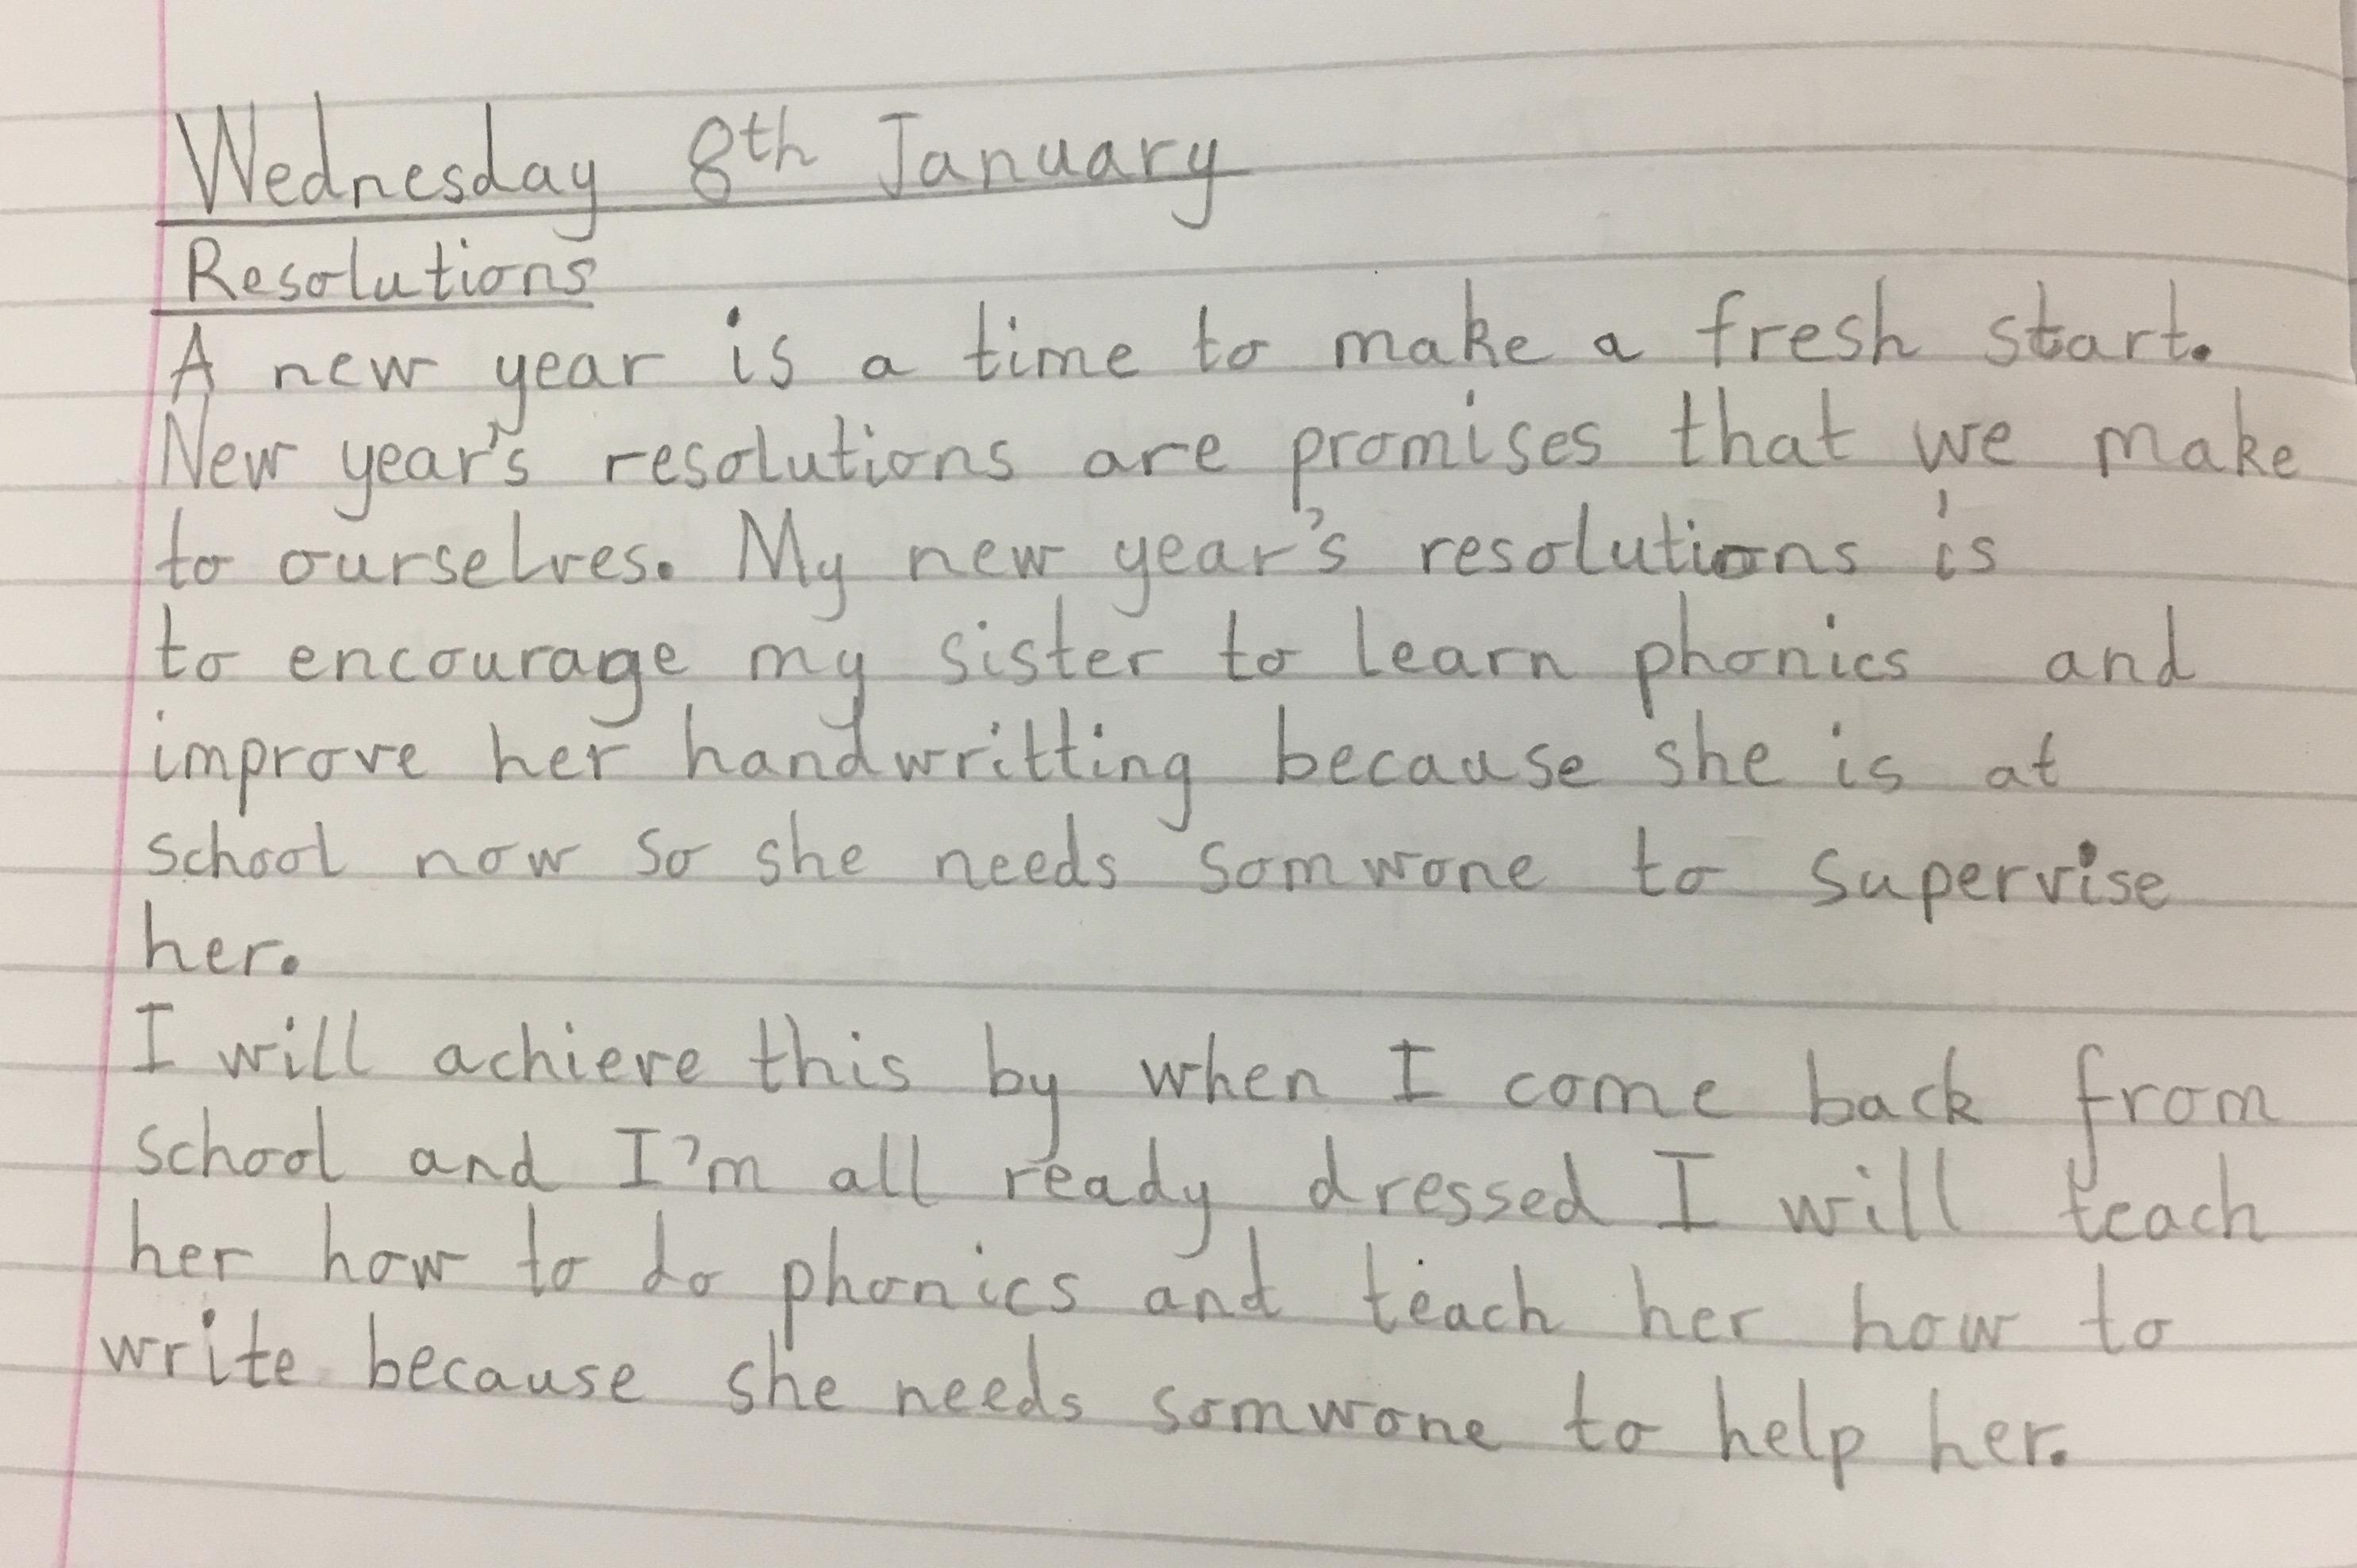 Wednesday 8th January
Resolutions
A new year is a time to make a fresh start.
New year's resolutions are promises that we make
to ourselves. My new year's resolutions is
to encourage my sister to learn phonics and
improve her handwritting because she is at
school now so she needs somwone to supervise
her.
I will achieve this by when I come back from
school and I'm all ready dressed I will teach
her how to do phonics and teach her how to
write because she needs somwone to help her.